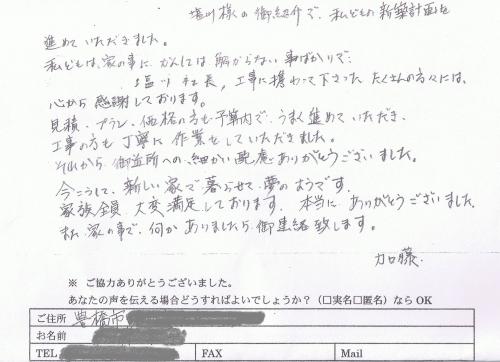 塩川様の御紹介で、私どもの新築計画を
進めていただきました。
私どもは、家の事にかんしては解からない事ばかりで、
塩川社長，工事に携わって下さった たくさんの方々には、
心から感謝しております。
見積・プラン・価格の方も予算内で、うまく進めていただき、
工事の方も丁寧に作業をしていただきました。
それから御近所への細かい配慮ありがとうございました。
今こうして、新しい家で暮らせて夢のようです。
家族全員 大変満足しております。本当にありがとうございました。
また家の事で、何かありましたら御連絡致します。
加藤.
※ ご協力ありがとうございました。
あなたの声を伝える場合どうすればよいでしょうか？（□実名□匿名）ならOK
ご住所 豊橋市
お名前
TEL FAX Mail